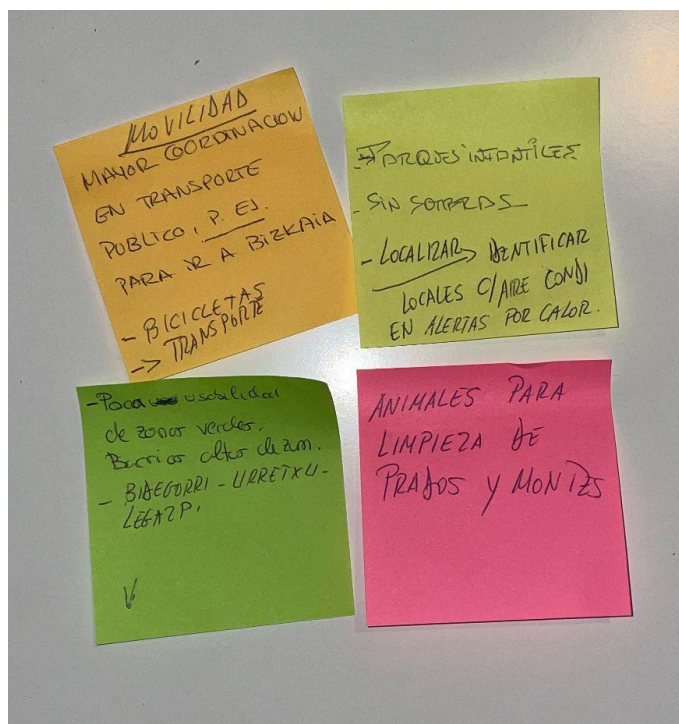 MOVILIDAD
MAYOR COORDINACION
EN TRANSPORTE
PUBLICO, P. EJ.
PARA IR A BIZKAIA
- BICICLETAS
-> TRANSPORTE
- PARQUES INFANTILES
- SIN SOMBRAS
- LOCALIZAR IDENTIFICAR
LOCALES C/AIRE CONDI
EN ALERTAS POR CALOR.
- Poca usabilidad
de zonas verdes.
Barrios altos de zum.
- BIDEGORRI - URRETXU -
LEGAZPI.
ANIMALES PARA
LIMPIEZA DE
PRADOS Y MONTES